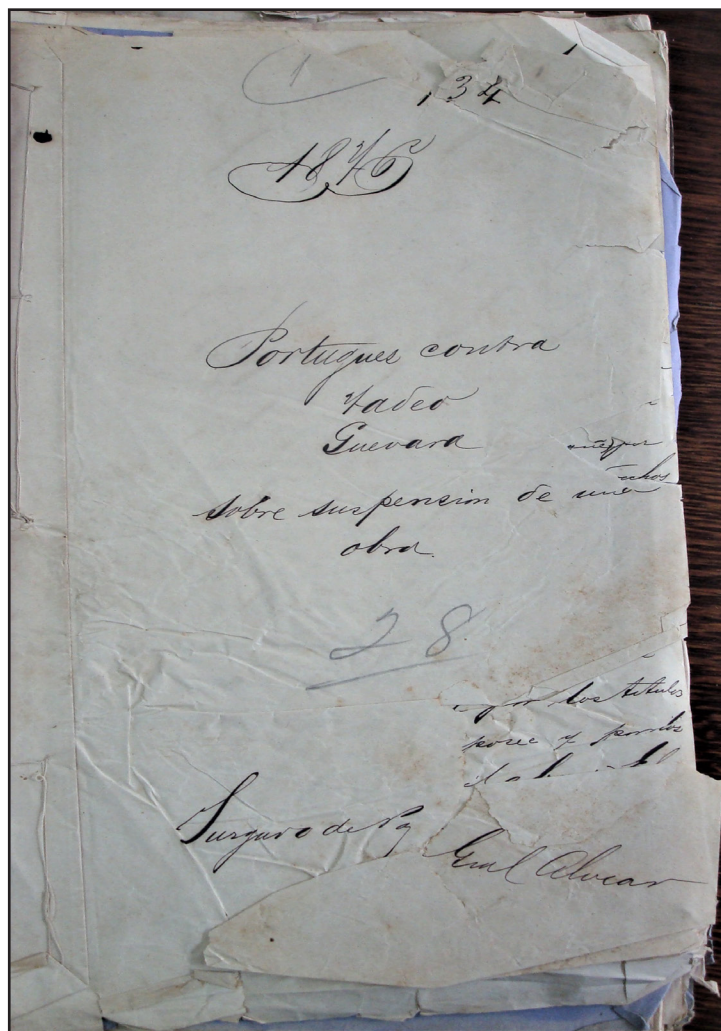 1
134
1876
Portugues contra
Tadeo
Guevara
sobre suspension de una
obra.
28
los titulos
posee y por los
Jusgado de Paz
Gral Alvear